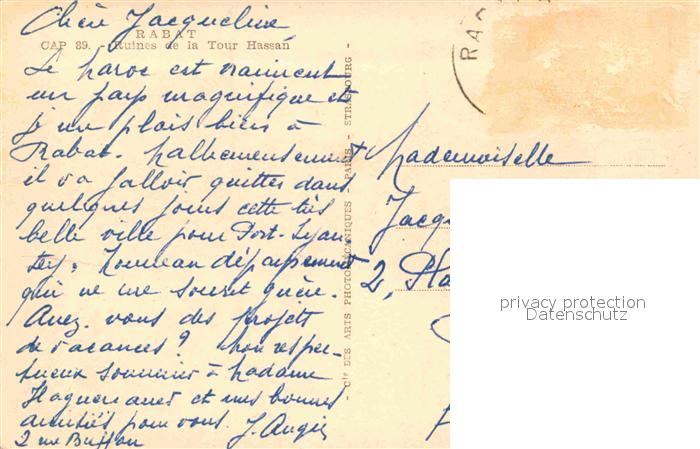 Chère Jacqueline
RABAT
CAP 89. Ruines de la Tour Hassan
Le Maroc est vraiment
un pays magnifique et
je me plais bien à
Rabat. Malheureusement
il va falloir quitter dans
quelques jours cette très
belle ville pour Port-Lyau-
tey. Nouveau département
qui ne me sourit guère.
Avez-vous des projets
de vacances? Mon respec-
tueux souvenir à Madame
et mes bonnes
amitiés pour vous. J. Angie
2 rue Buffon
Cie DES ARTS PHOTOMÉCANIQUES - PARIS - STRASBOURG -
RAB
Mademoiselle
Jacqu
2, Pla
privacy protection
Datenschutz